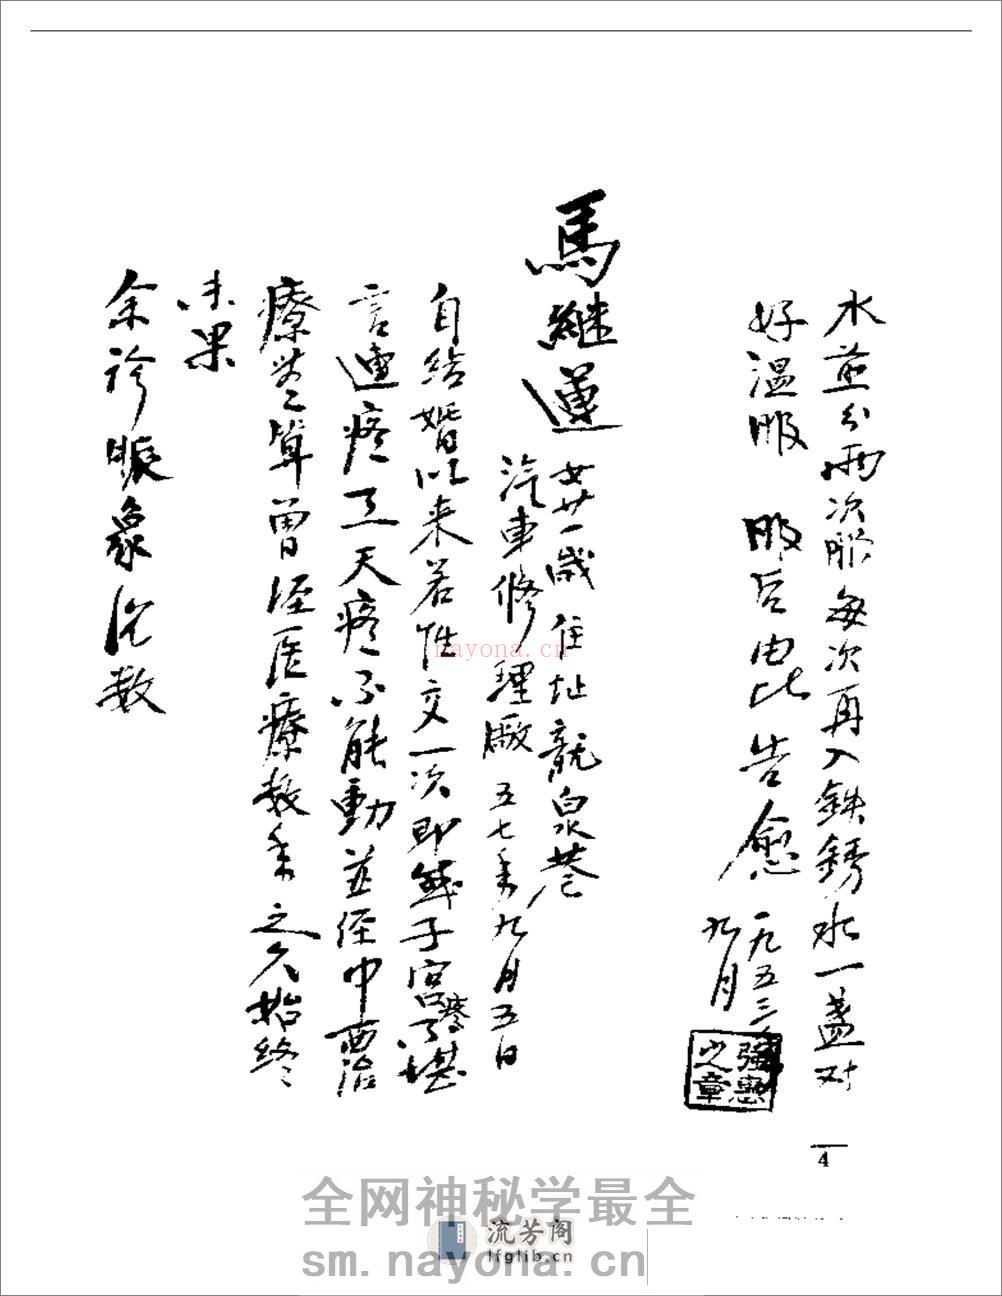 水煎分兩次服每次再入鉄銹水一盞对
好温服 服后由此告愈 一九五三年
九月
強惠
之章
馬继運 女廿一歲住址龍泉巷
汽車修理厰 五七年九月五日
自结婚以来若性交一次即然子宫疼不堪
言連疼三天疼不能動並経中西治
療 算曽経医療数年之久始终
未果
余诊脈象沉数
4
nayona.cn
全网神秘学最全
流芳阁
lfglib.cn
sm.nayona.cn